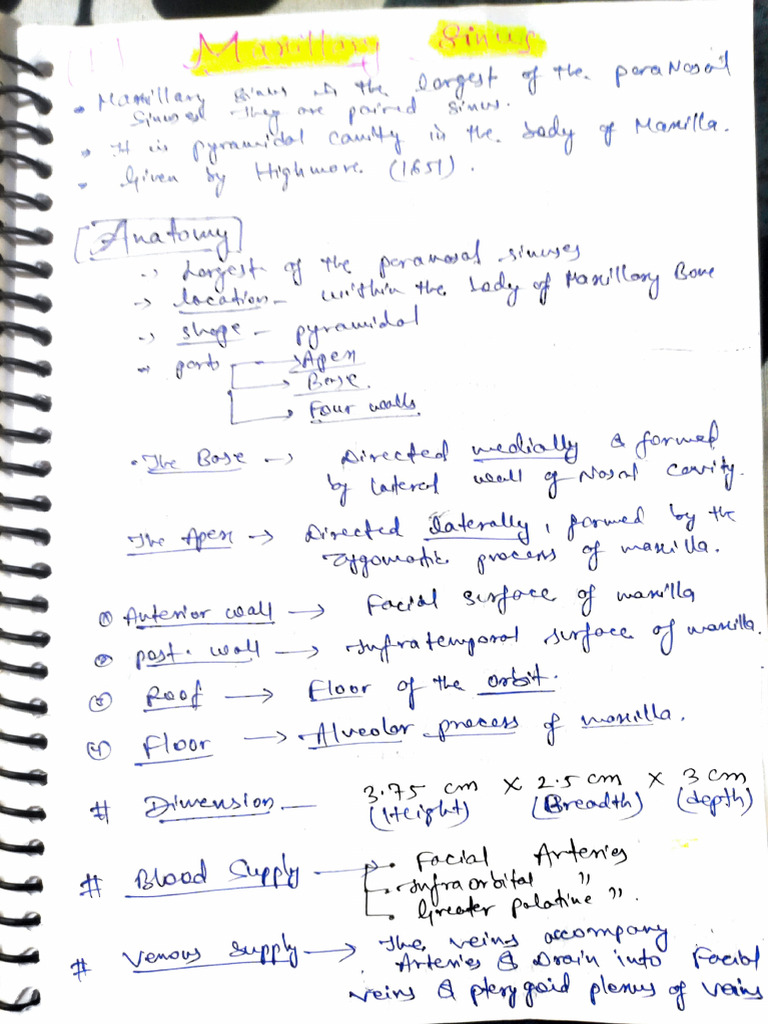 (1) Maxillary Sinus
• Maxillary sinus is the largest of the paraNasal
Sinuses. They are paired sinus.
• It is pyramidal cavity in the body of Maxilla.
• Given by Highmore (1651).
[Anatomy]
-> Largest of the paranasal sinuses
-> location - within the body of Maxillary Bone
-> shape - pyramidal
-> parts → Apex
→ Base.
→ Four walls.
• The Base -> Directed medially & formed
by lateral wall of Nasal cavity.
The Apex -> Directed laterally, formed by the
zygomatic process of maxilla.
① Anterior wall -> Facial surface of maxilla
② post. wall -> Infratemporal surface of maxilla.
③ Roof -> Floor of the orbit.
④ Floor -> Alveolar process of maxilla.
# Dimension - 3.75 cm x 2.5 cm x 3 cm
(Height) (Breadth) (depth)
# Blood Supply -> • Facial Arteries
• Infraorbital "
• Greater palatine ".
# Venous supply -> The veins accompany
Arteries & Drain into Facial
veins & pterygoid plexus of veins